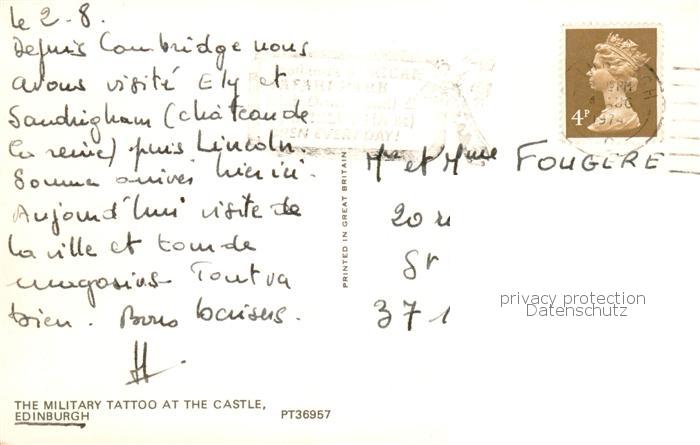 le 2-8.
Depuis Cambridge nous
avons visité Ely et
Sandrigham (château de
la reine) puis Lincoln.
Somme arrivés hier ici.
Aujourd'hui visite de
la ville et tour de
magasins. Tout va
bien. Bons baisers.
H.
THE MILITARY TATTOO AT THE CASTLE,
EDINBURGH
PT36957
PRINTED IN GREAT BRITAIN
4P
Mr et Mme FOUGERE
20 r
St
37 1
privacy protection
Datenschutz